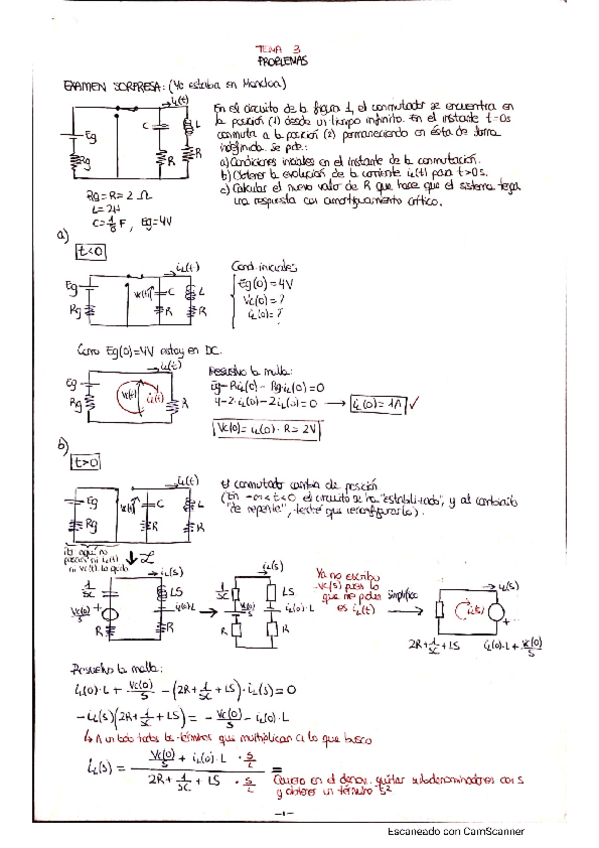 TEMA 3
PROBLEMAS
EXAMEN SORPRESA: (Yo estaba en Moncloa)
iL(t)
En el circuito de la figura 1, el conmutador se encuentra en
la posición (1) desde un tiempo infinito. En el instante t=0s
conmuta a la posición (2) permaneciendo en ésta de forma
indefinida. Se pide:
a) Condiciones iniciales en el instante de la conmutación.
b) Obtener la evolución de la corriente iL(t) para t>0s.
c) Calcular el nuevo valor de R que hace que el sistema tenga
una respuesta con amortiguamiento crítico.
Eg
Rg
C
L
R
R
Rg=R=2 Ω
L=2H
C=1/8 F, Eg=4V
a)
t<0
iL(t)
Eg
Rg
Vc(t)
C
L
R
R
Cond. iniciales
Eg(0)=4V
Vc(0)=?
iL(0)=?
Como Eg(0)=4V estoy en DC.
iL(t)
Eg
Rg
Vc(t)
iL(t)
R
Resuelvo la malla:
Eg-RiL(0)-Rg·iL(0)=0
4-2·iL(0)-2iL(0)=0 → iL(0)=1A ✓
Vc(0)=iL(0)·R=2V
b)
t>0
iL(t)
Eg
Rg
Vc(t)
C
L
R
R
El conmutador cambia de posición
(En -∞<t<0 el circuito se ha "estabilizado", y al cambiarlo
"de repente", tendré que reconfigurarlo).
L
iL(s)
1/SC
Vc(0)/S
R
LS
iL(0)·L
R
iL(s)
1/SC
Vc(0)/S
R
LS
iL(0)·L
R
Ya no escribo
Vc(s) pues lo
que me piden
es iL(t)
simplifico
iL(s)
iL(s)
2R+1/SC+LS
iL(0)·L+Vc(0)/S
Resuelvo la malla:
iL(0)·L + Vc(0)/S - (2R+1/SC+LS)·iL(s)=0
-iL(s)(2R+1/SC+LS) = -Vc(0)/S - iL(0)·L
↳ A un lado todos los términos que multiplican a lo que busco
iL(s) = (Vc(0)/S + iL(0)·L · S/L) / (2R+1/SC+LS · S/L) =
Quiero en el denom. quitar subdenominadores con S
y obtener un término S²
-1-
Escaneado con CamScanner